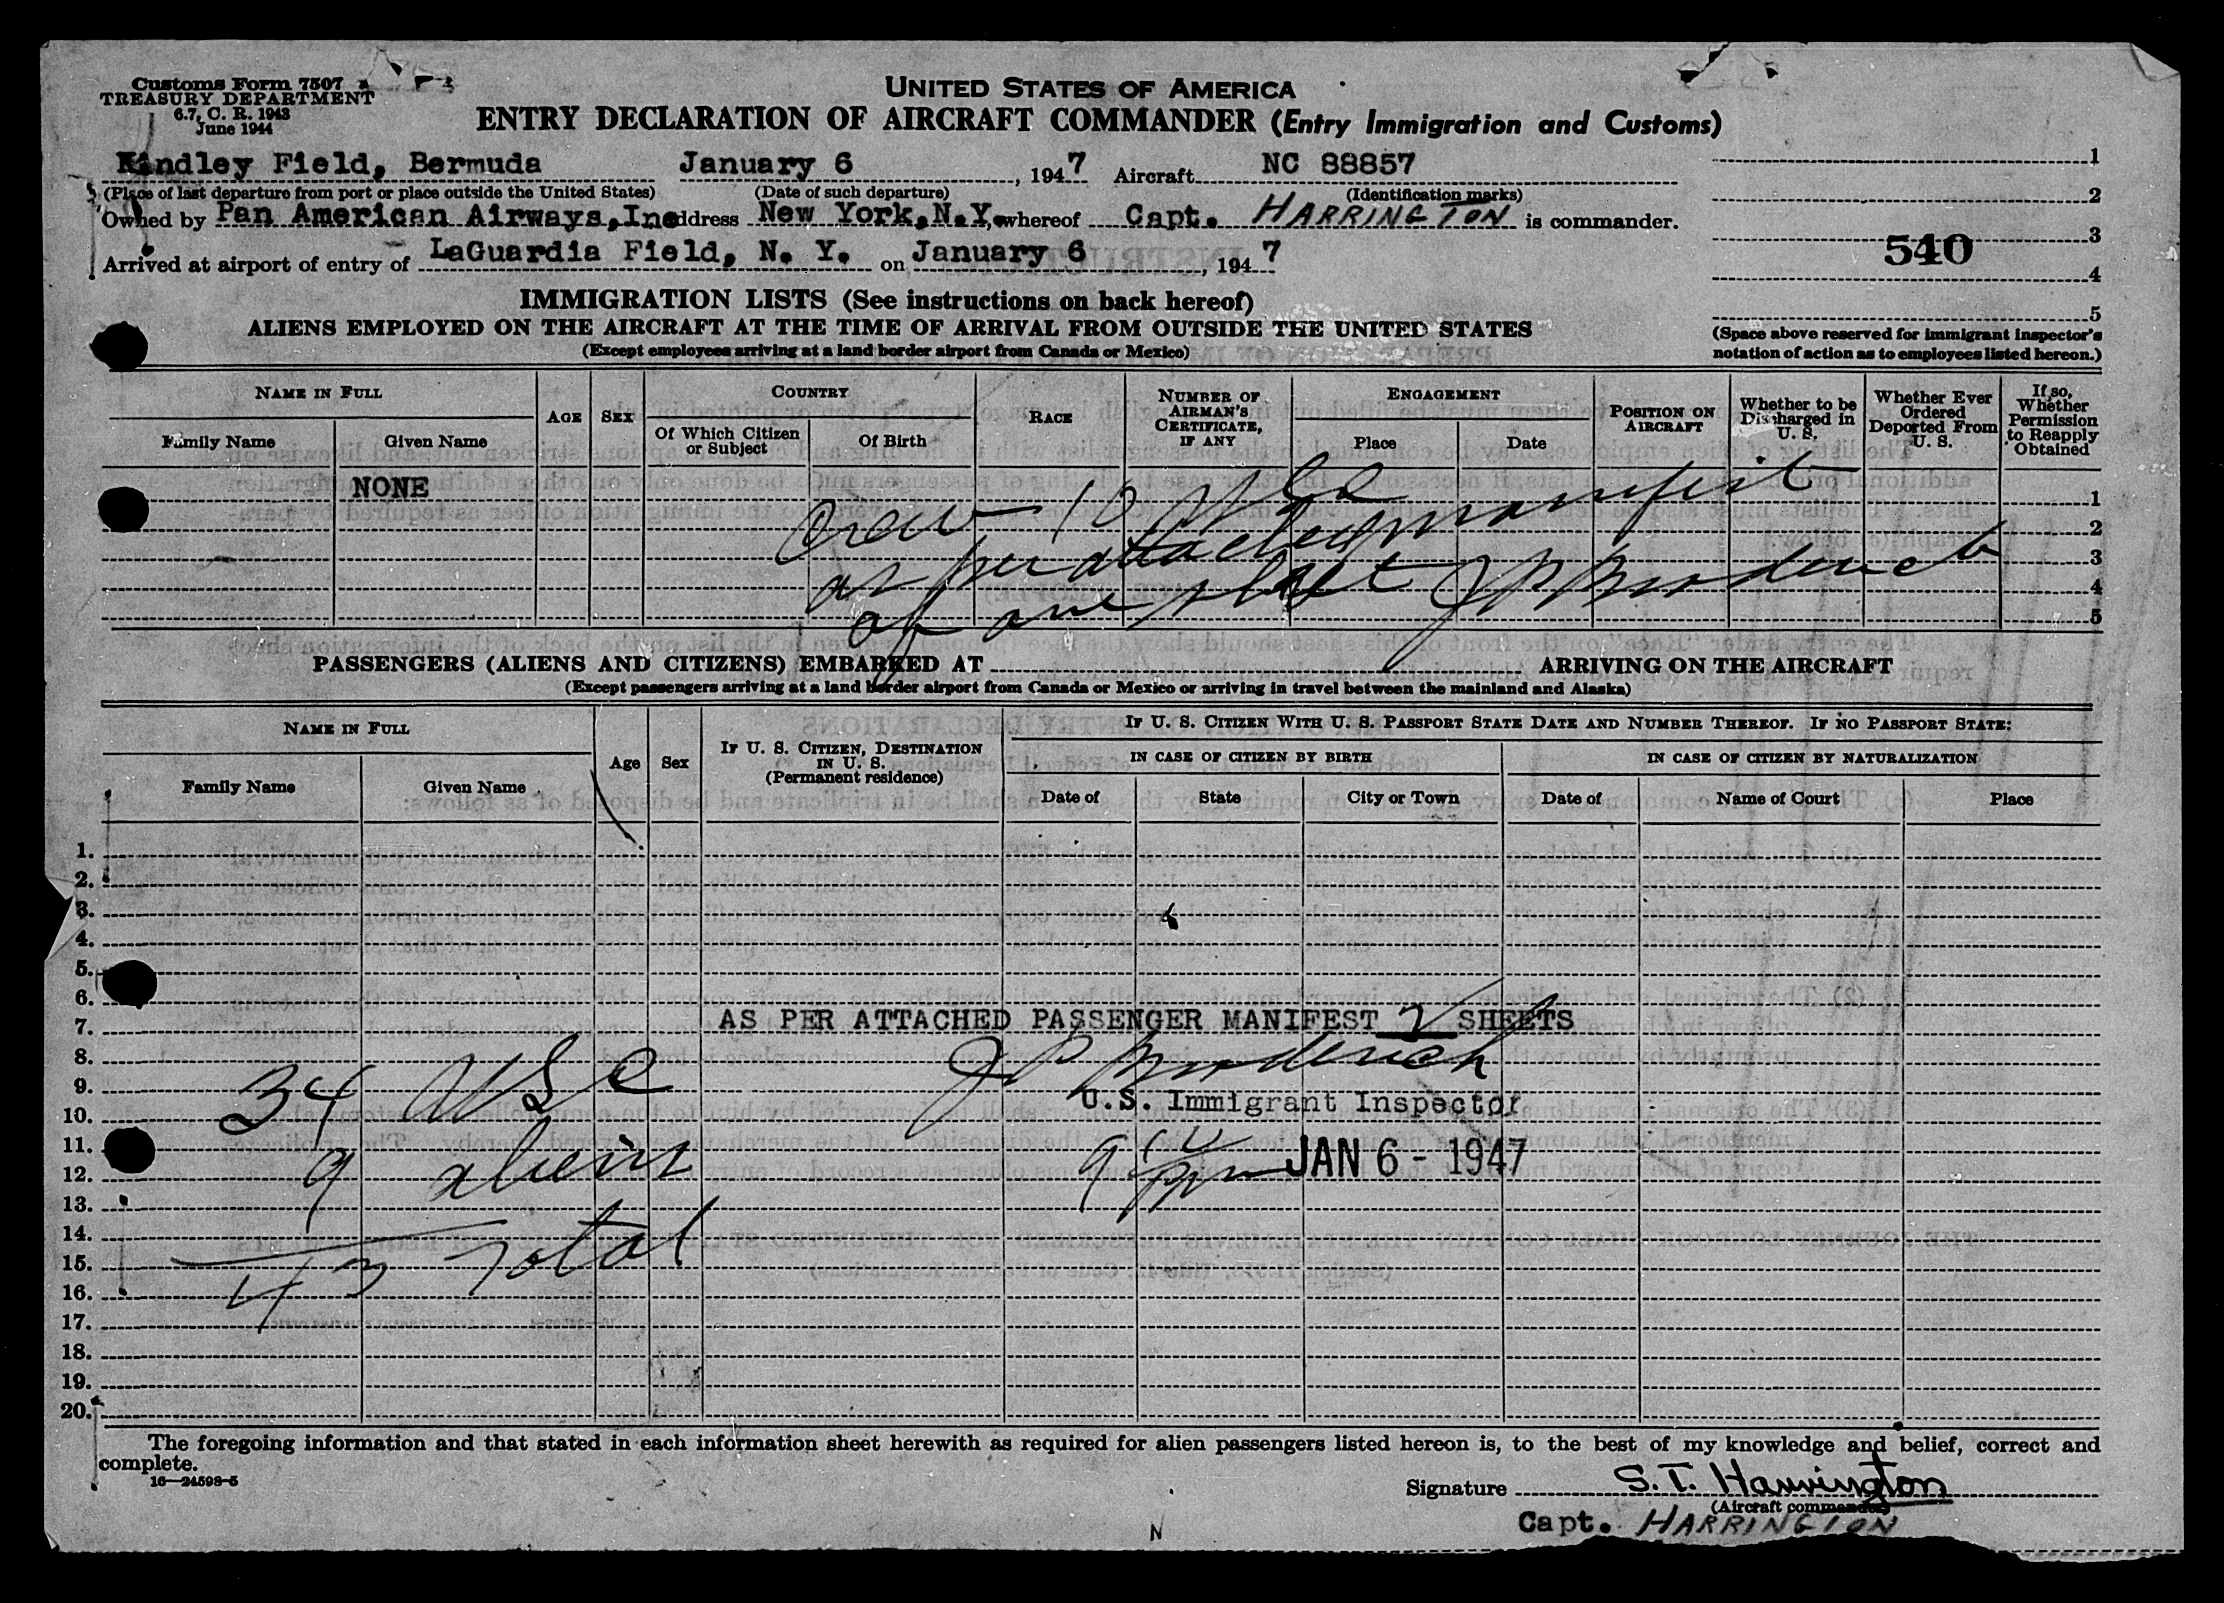 Customs Form 7507
TREASURY DEPARTMENT
6.7, C. R. 1943
June 1944
UNITED STATES OF AMERICA
ENTRY DECLARATION OF AIRCRAFT COMMANDER (Entry Immigration and Customs)
Kindley Field, Bermuda January 6, 1947 Aircraft NC 88857
(Place of last departure from port or place outside the United States) (Date of such departure) (Identification marks)
Owned by Pan American Airways, Inc address New York, N.Y. whereof Capt. HARRINGTON is commander.
Arrived at airport of entry of LaGuardia Field, N. Y. on January 6, 1947
1
2
3
540
4
5
(Space above reserved for immigrant inspector's
notation of action as to employees listed hereon.)
IMMIGRATION LISTS (See instructions on back hereof)
ALIENS EMPLOYED ON THE AIRCRAFT AT THE TIME OF ARRIVAL FROM OUTSIDE THE UNITED STATES
(Except employees arriving at a land border airport from Canada or Mexico)
NAME IN FULL
Family Name
Given Name
AGE
SEX
COUNTRY
Of Which Citizen
or Subject
Of Birth
RACE
NUMBER OF
AIRMAN'S
CERTIFICATE,
IF ANY
ENGAGEMENT
Place
Date
POSITION ON
AIRCRAFT
Whether to be
Discharged in
U. S.
Whether Ever
Ordered
Deported From
U. S.
If so,
Whether
Permission
to Reapply
Obtained
NONE
Crew 10 USC
as per attached manifest
of one sheet J P Broderick
1
2
3
4
5
PASSENGERS (ALIENS AND CITIZENS) EMBARKED AT ARRIVING ON THE AIRCRAFT
(Except passengers arriving at a land border airport from Canada or Mexico or arriving in travel between the mainland and Alaska)
NAME IN FULL
Family Name
Given Name
Age
Sex
IF U. S. CITIZEN, DESTINATION
IN U. S.
(Permanent residence)
IF U. S. CITIZEN WITH U. S. PASSPORT STATE DATE AND NUMBER THEREOF. IF NO PASSPORT STATE:
IN CASE OF CITIZEN BY BIRTH
IN CASE OF CITIZEN BY NATURALIZATION
Date of
State
City or Town
Date of
Name of Court
Place
1.
2.
3.
4.
5.
6.
7. AS PER ATTACHED PASSENGER MANIFEST 2 SHEETS
8. J P Broderick
9. 34 USC
10. U.S. Immigrant Inspector
11.
12. 9 aliens 9 pm JAN 6 - 1947
13.
14.
15. 43 Total
16.
17.
18.
19.
20.
The foregoing information and that stated in each information sheet herewith as required for alien passengers listed hereon is, to the best of my knowledge and belief, correct and
complete.
16—24598-5
Signature S. T. Harrington
(Aircraft commander)
Capt. HARRINGTON
N